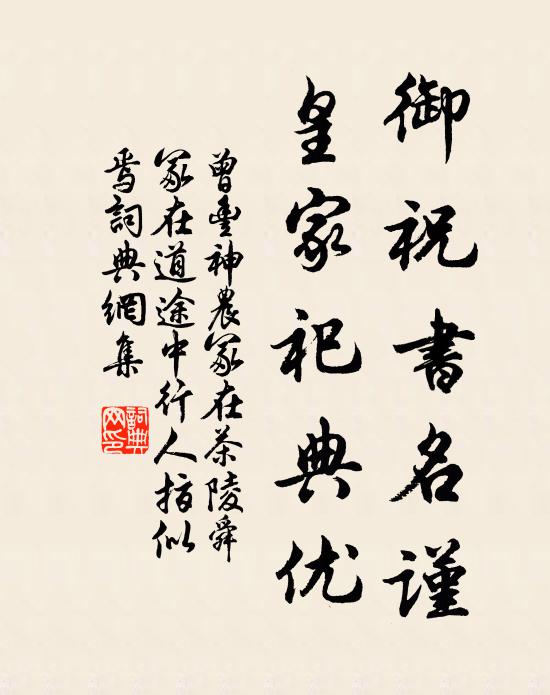 御祝書名謹
皇家祀典优
曾豊神農冢在茶陵舜
冢在道途中行人指似
焉詞典網集
詞典
网印